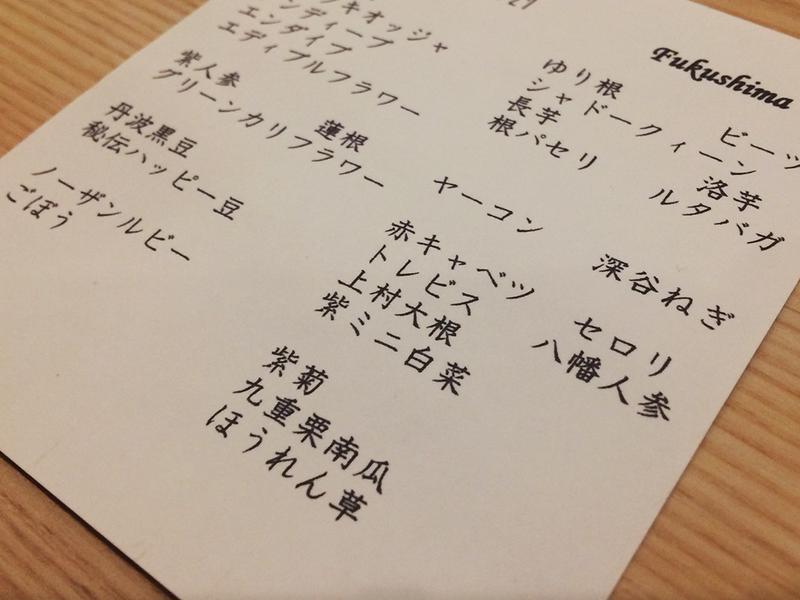 Fukushima
キオッジャ
ンディーブ
エンダイブ
エディブルフラワー
紫人参
グリーンカリフラワー
丹波黒豆
秘伝ハッピー豆
ノーザンルビー
ごぼう
蓮根
ゆり根
シャドークィーン
長芋
根パセリ
ビーツ
洛芋
ルタバガ
ヤーコン
赤キャベツ
トレビス
上村大根
紫ミニ白菜
深谷ねぎ
セロリ
八幡人参
紫菊
九重栗南瓜
ほうれん草